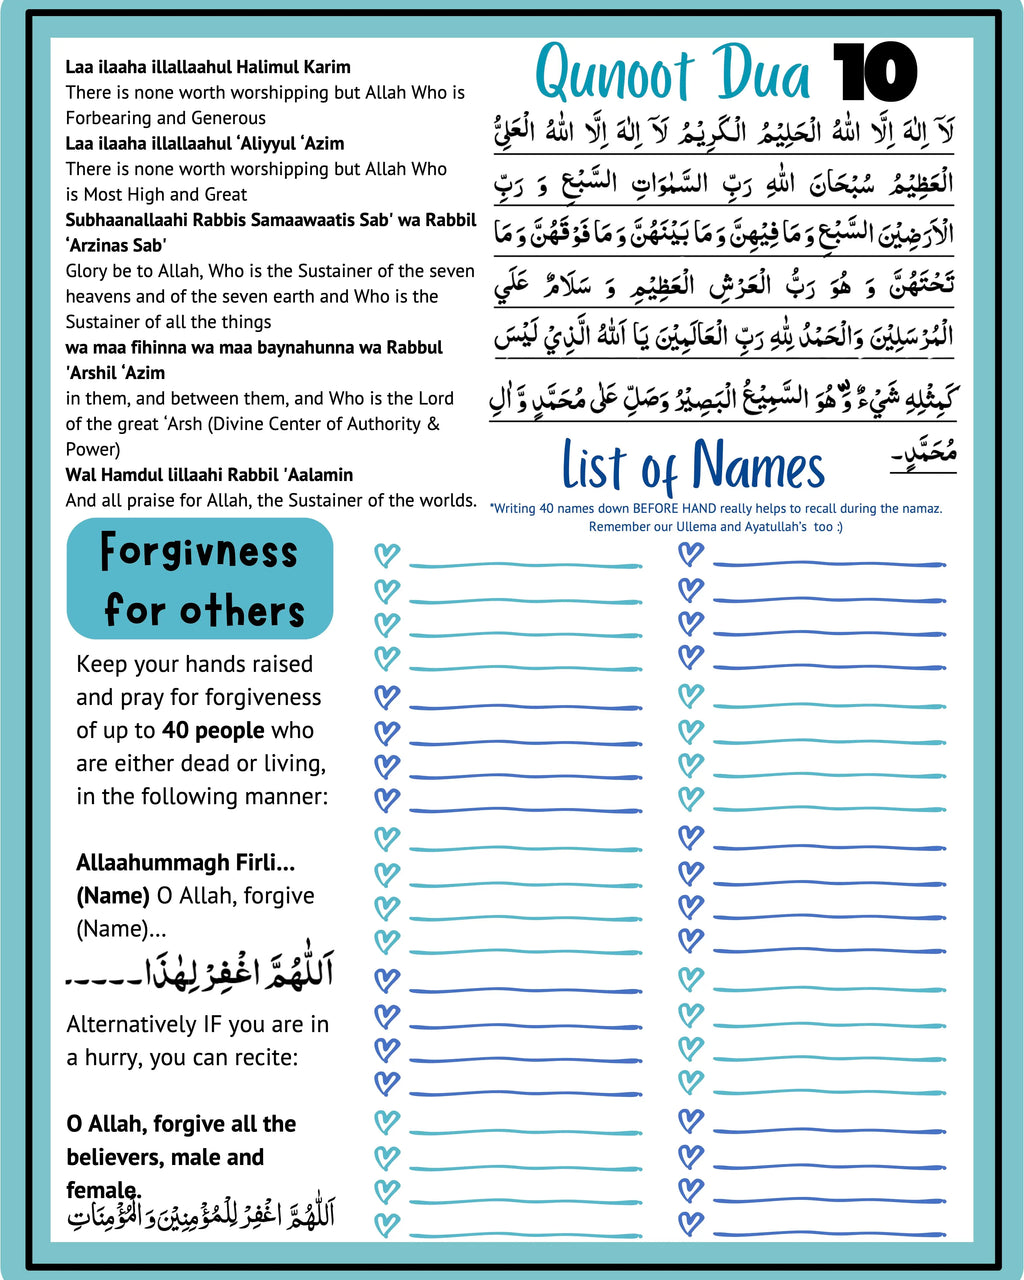 Laa ilaaha illallaahul Halimul Karim
There is none worth worshipping but Allah Who is
Forbearing and Generous
Laa ilaaha illallaahul ‘Aliyyul ‘Azim
There is none worth worshipping but Allah Who
is Most High and Great
Subhaanallaahi Rabbis Samaawaatis Sab' wa Rabbil
‘Arzinas Sab'
Glory be to Allah, Who is the Sustainer of the seven
heavens and of the seven earth and Who is the
Sustainer of all the things
wa maa fihinna wa maa baynahunna wa Rabbul
'Arshil ‘Azim
in them, and between them, and Who is the Lord
of the great ‘Arsh (Divine Center of Authority &
Power)
Wal Hamdul lillaahi Rabbil 'Aalamin
And all praise for Allah, the Sustainer of the worlds.
Qunoot Dua 10
لَآ اِلٰهَ اِلَّا اللهُ الْحَلِيْمُ الْكَرِيْمُ لَآ اِلٰهَ اِلَّا اللهُ الْعَلِيُّ
الْعَظِيْمُ سُبْحَانَ اللهِ رَبِّ السَّمٰوَاتِ السَّبْعِ وَ رَبِّ
الْاَرَضِيْنَ السَّبْعِ وَ مَا فِيْهِنَّ وَ مَا بَيْنَهُنَّ وَ مَا فَوْقَهُنَّ وَ مَا
تَحْتَهُنَّ وَ هُوَ رَبُّ الْعَرْشِ الْعَظِيْمِ وَ سَلَامٌ عَلَي
الْمُرْسَلِيْنَ وَالْحَمْدُ لِلّٰهِ رَبِّ الْعَالَمِيْنَ يَا اَللهُ الَّذِيْ لَيْسَ
كَمِثْلِهِ شَيْءٌ وَّهُوَ السَّمِيْعُ الْبَصِيْرُ وَصَلِّ عَلٰى مُحَمَّدٍ وَّ اٰلِ
مُحَمَّدٍ۔
List of Names
*Writing 40 names down BEFORE HAND really helps to recall during the namaz.
Remember our Ullema and Ayatullah's too :)
Forgivness
for others
Keep your hands raised
and pray for forgiveness
of up to 40 people who
are either dead or living,
in the following manner:
Allaahummagh Firli...
(Name) O Allah, forgive
(Name)...
اَللّٰهُمَّ اغْفِرْ لِهٰذَا۔۔۔۔۔
Alternatively IF you are in
a hurry, you can recite:
O Allah, forgive all the
believers, male and
female.
اَللّٰهُمَّ اغْفِرْ لِلْمُؤْمِنِيْنَ وَ الْمُؤْمِنَاتِ